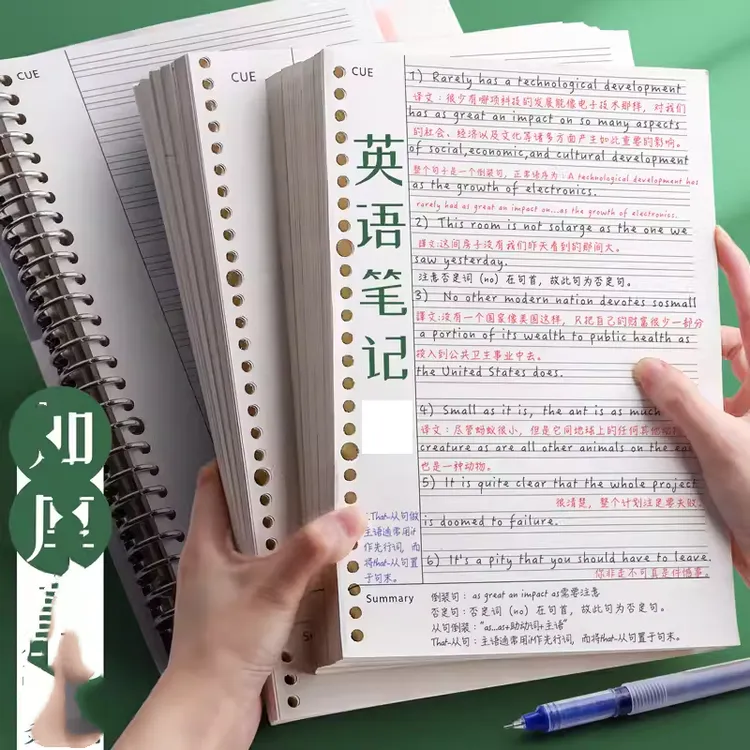 CUE
CUE
CUE
英语笔记
1) Rarely has a technological development
译文:很少有哪项科技的发展能像电子技术那样，对我们
has as great an impact on so many aspects
的社会、经济以及文化等诸多方面产生如此重要的影响。
of social,economic,and cultural development
整个句子是一个倒装句，正常语序为:A technological development has
as the growth of electronics.
rarely had as great an impact on...as the growth of electronics.
2) This room is not solarge as the one we
譯文:这间房子没有我们昨天看到的那间大。
saw yesterday.
注意否定词 (no) 在句首，故此句为否定句。
3) No other modern nation devotes sosmall
譯文:没有一个国家像美国这样，只把自己的财富很少一部分
a portion of its wealth to public health as
投入到公共卫生事业中去。
the United States does.
4) Small as it is, the ant is as much
译文:尽管蚂蚁很小，但是它同地球上的任何其他动物
creature as are all other animals on the
也是一种动物。
5) It is quite clear that the whole project
很清楚，整个计划注定要失败
is doomed to failure.
That-从句做
主语通常用it
作先行词，而
将that-从句置
于句末。
6) It's a pity that you should have to leave.
你非走不可真是件憾事。
Summary
倒装句: as great an impact as需要注意
否定句:否定词 (no) 在句首，故此句为否定句。
从句倒装:"as...as+助动词+主语"
That-从句:主语通常用it作先行词，而将that-从句置于句末。
CUE